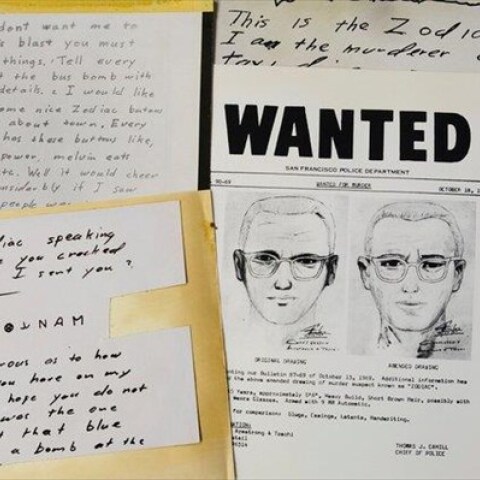 dont want me to
blast you must
things. Tell every
the bus bomb with
details. I would like
some nice Zodiac butons
about town. Every
has these buttons like,
power, melvin eats
etc. Well it would cheer
considerbly if I saw
people
This is the Zodiac
I am the murderer
speaking
you cracked
I sent you?
NAM
as to how
you have on my
hope you do not
was the one
that blue
a bomb at the
WANTED
SAN FRANCISCO POLICE DEPARTMENT
90-69 WANTED FOR MURDER OCTOBER 18,
ORIGINAL DRAWING AMENDED DRAWING
our Bulletin 87-69 of October 13, 1969. Additional information has
the above amended drawing of murder suspect known as "ZODIAC".
Years, approximately Build, Short Brown Hair, possibly with
Glasses. Armed with 9 MM Automatic.
for comparison: Slugs, Casings, Latents, Handwriting.
Armstrong & Toschi
THOMAS J. CAHILL
CHIEF OF POLICE